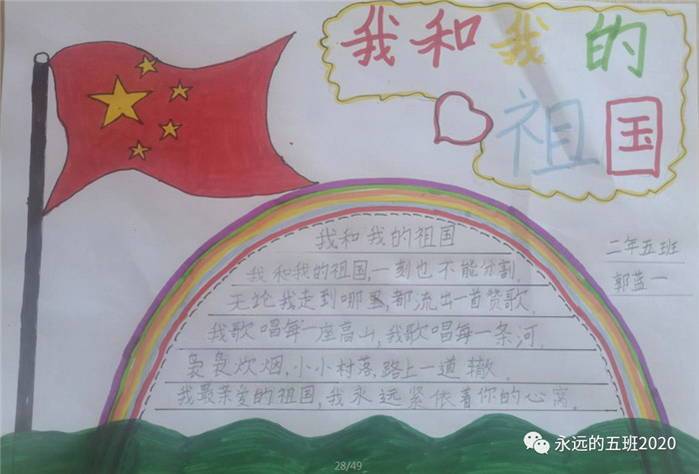 我和我的
祖国
二年五班
郭蓝一
我和我的祖国
我和我的祖国,一刻也不能分割,
无论我走到哪里,都流出一首赞歌,
我歌唱每一座高山,我歌唱每一条河,
袅袅炊烟,小小村落,路上一道辙,
我最亲爱的祖国,我永远紧依着你的心窝,
永远的五班2020
28/49